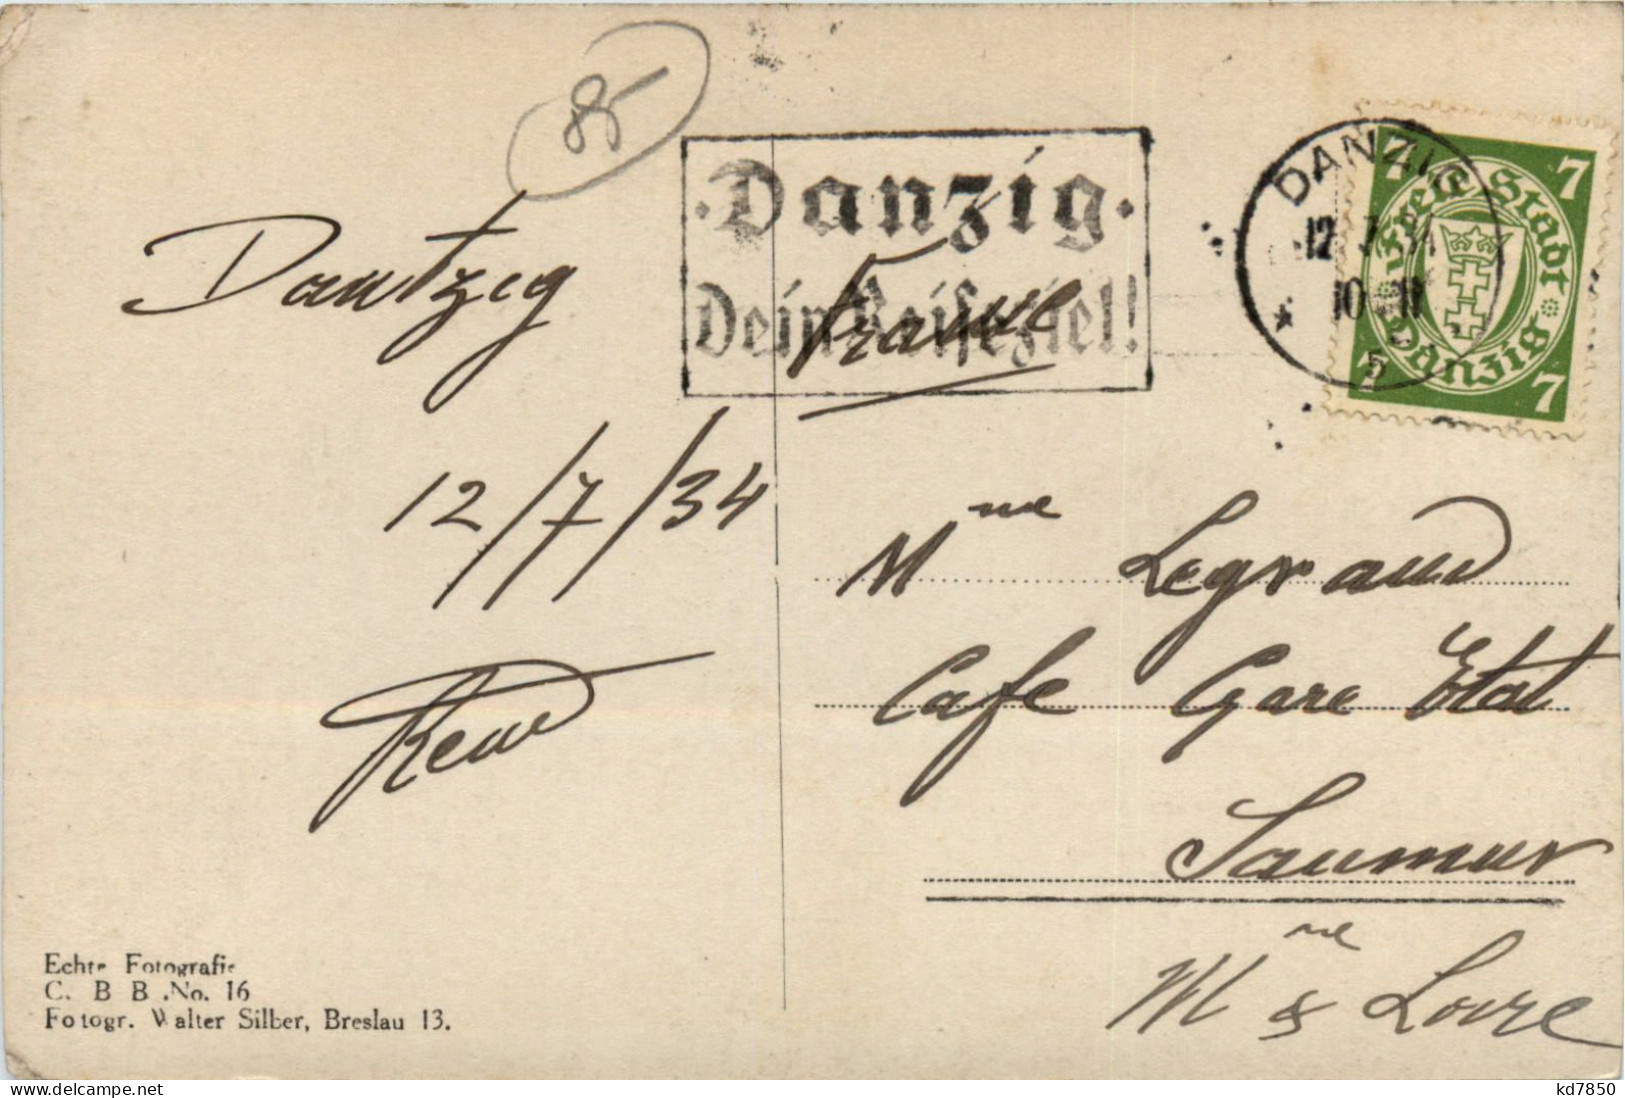 85
Dantzig
12/7/34
René
Echte Fotografie
C. B B .No. 16
Fotogr. Walter Silber, Breslau 13.
·Danzig·
Dein Reiseziel!
France
DANZIG
12.7.34
10-11
* 5
7 7
Freie Stadt
Danzig
7 7
Mme Legrand
Cafe Gare Etat
Saumur
Mne & Loire
www.delcampe.net
kd7850